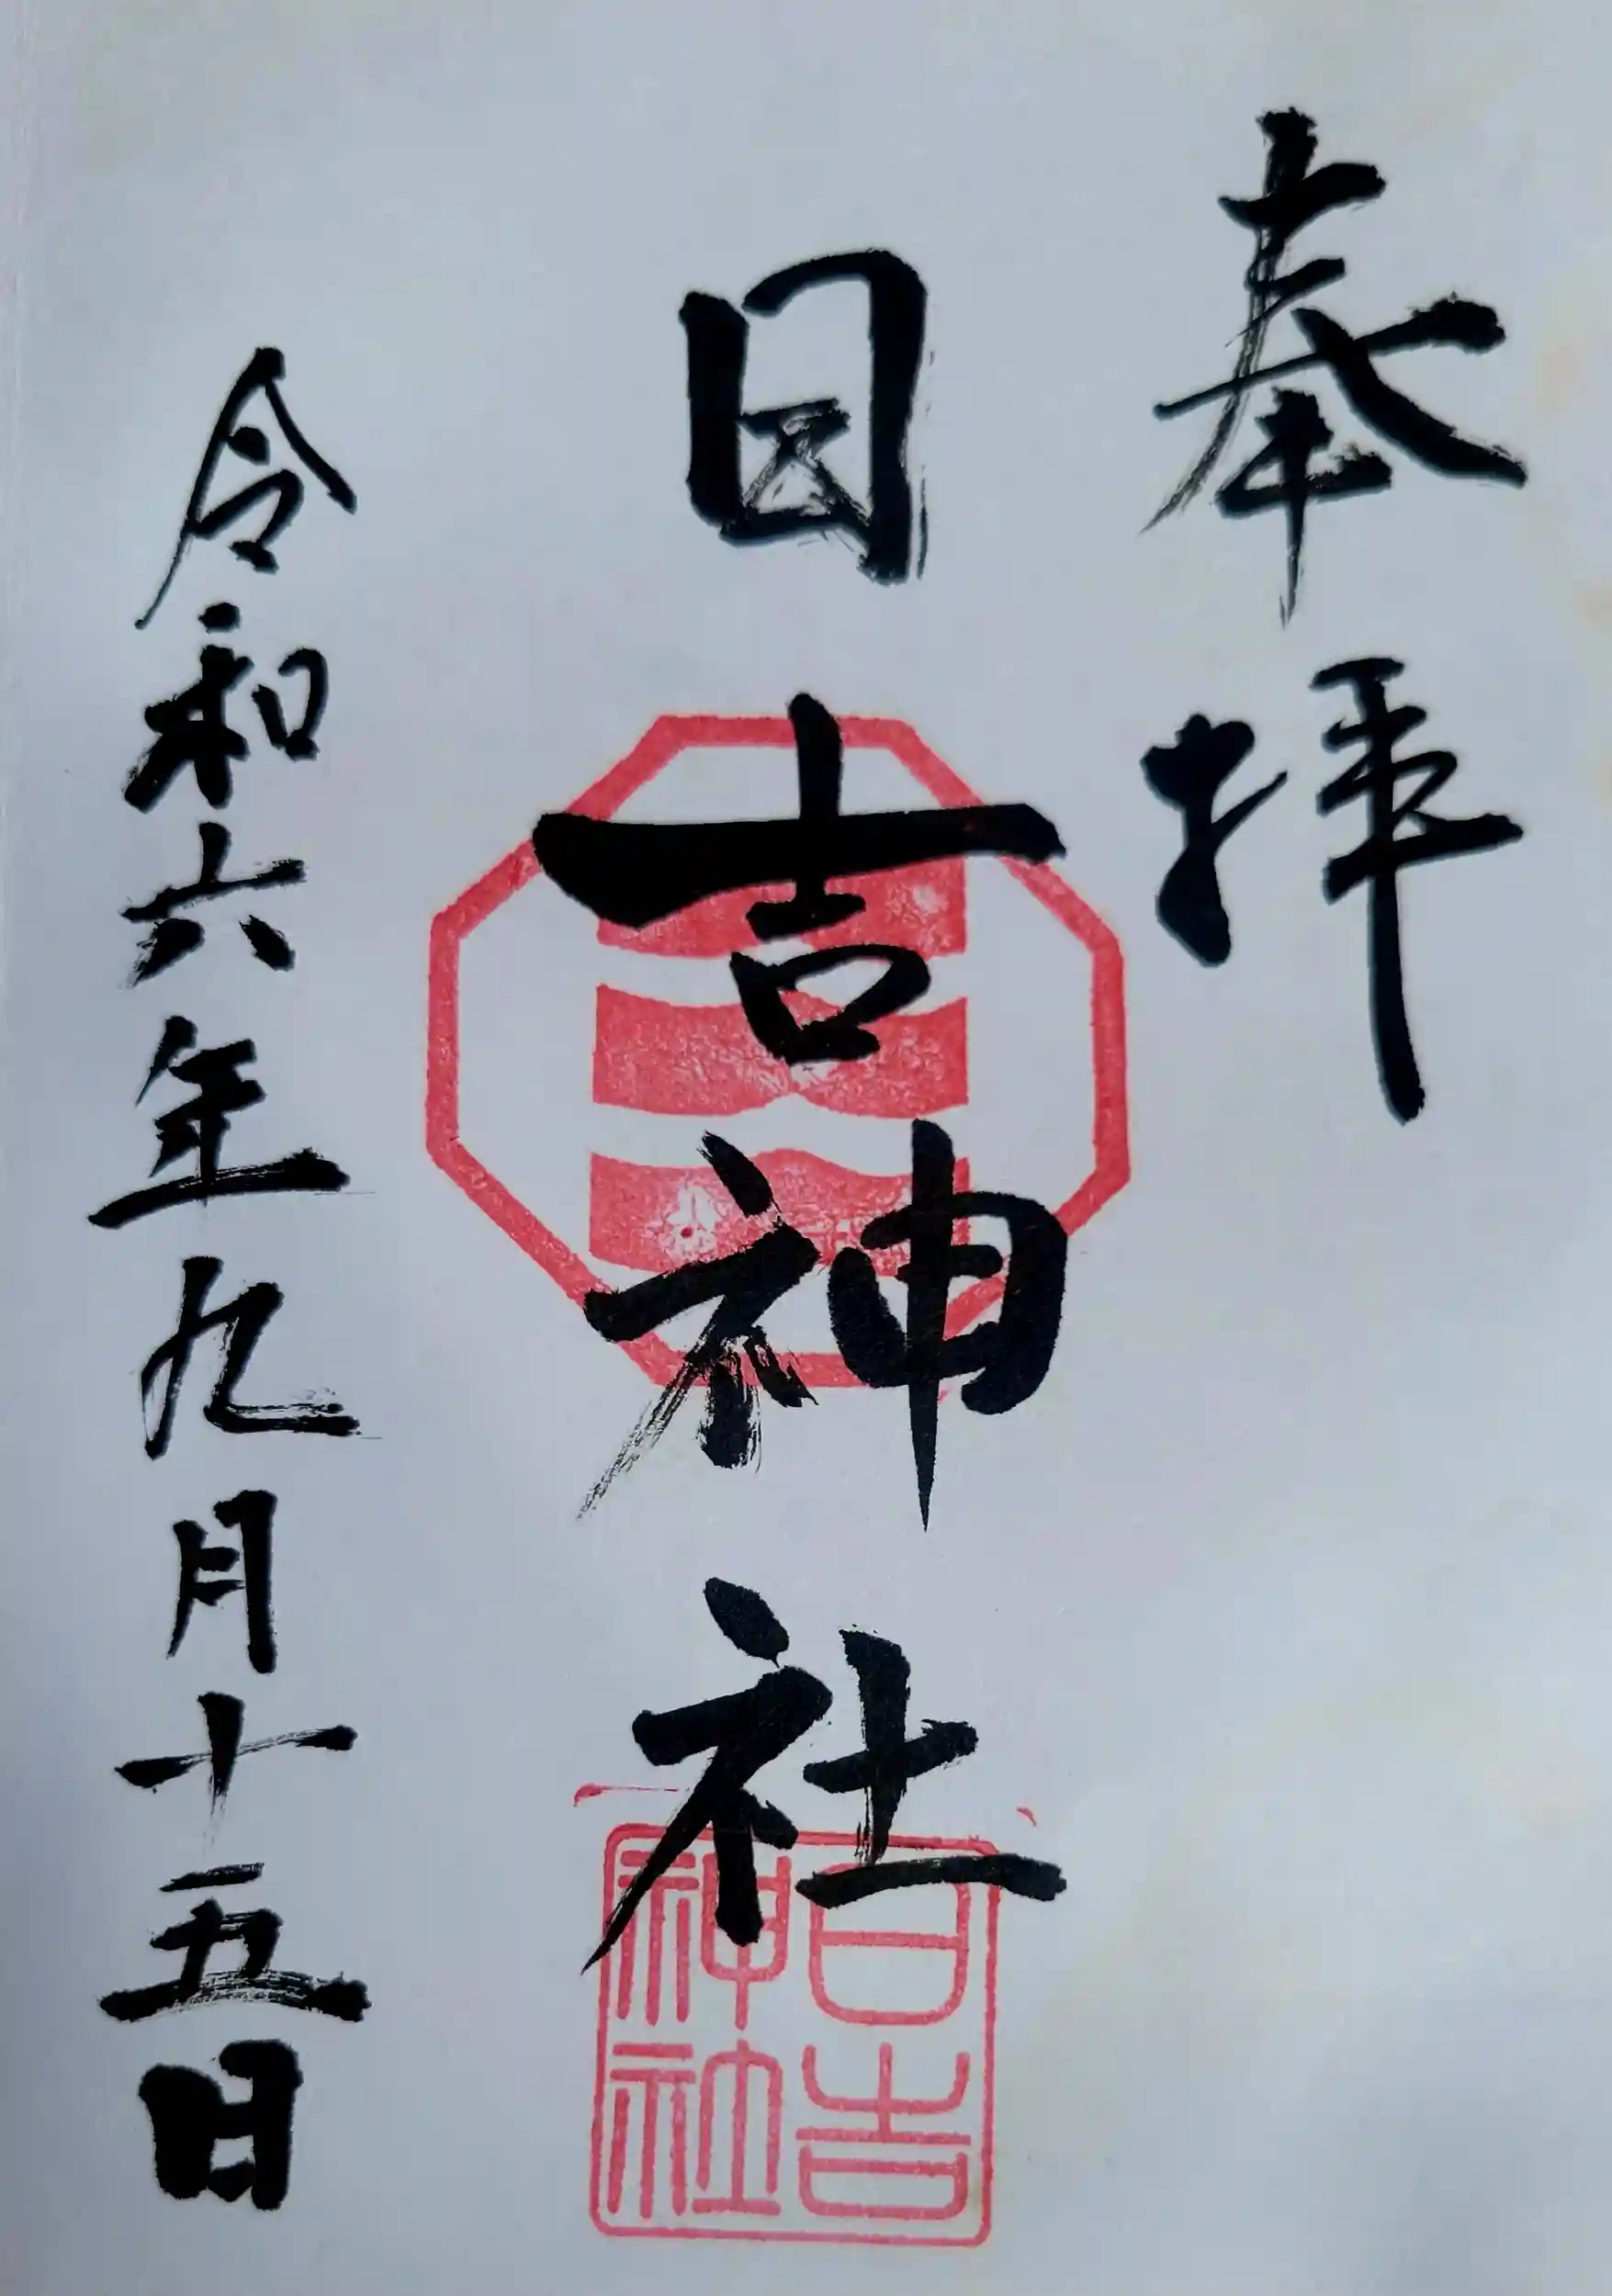 奉拝
日吉神社
日吉
神社
令和六年九月十五日